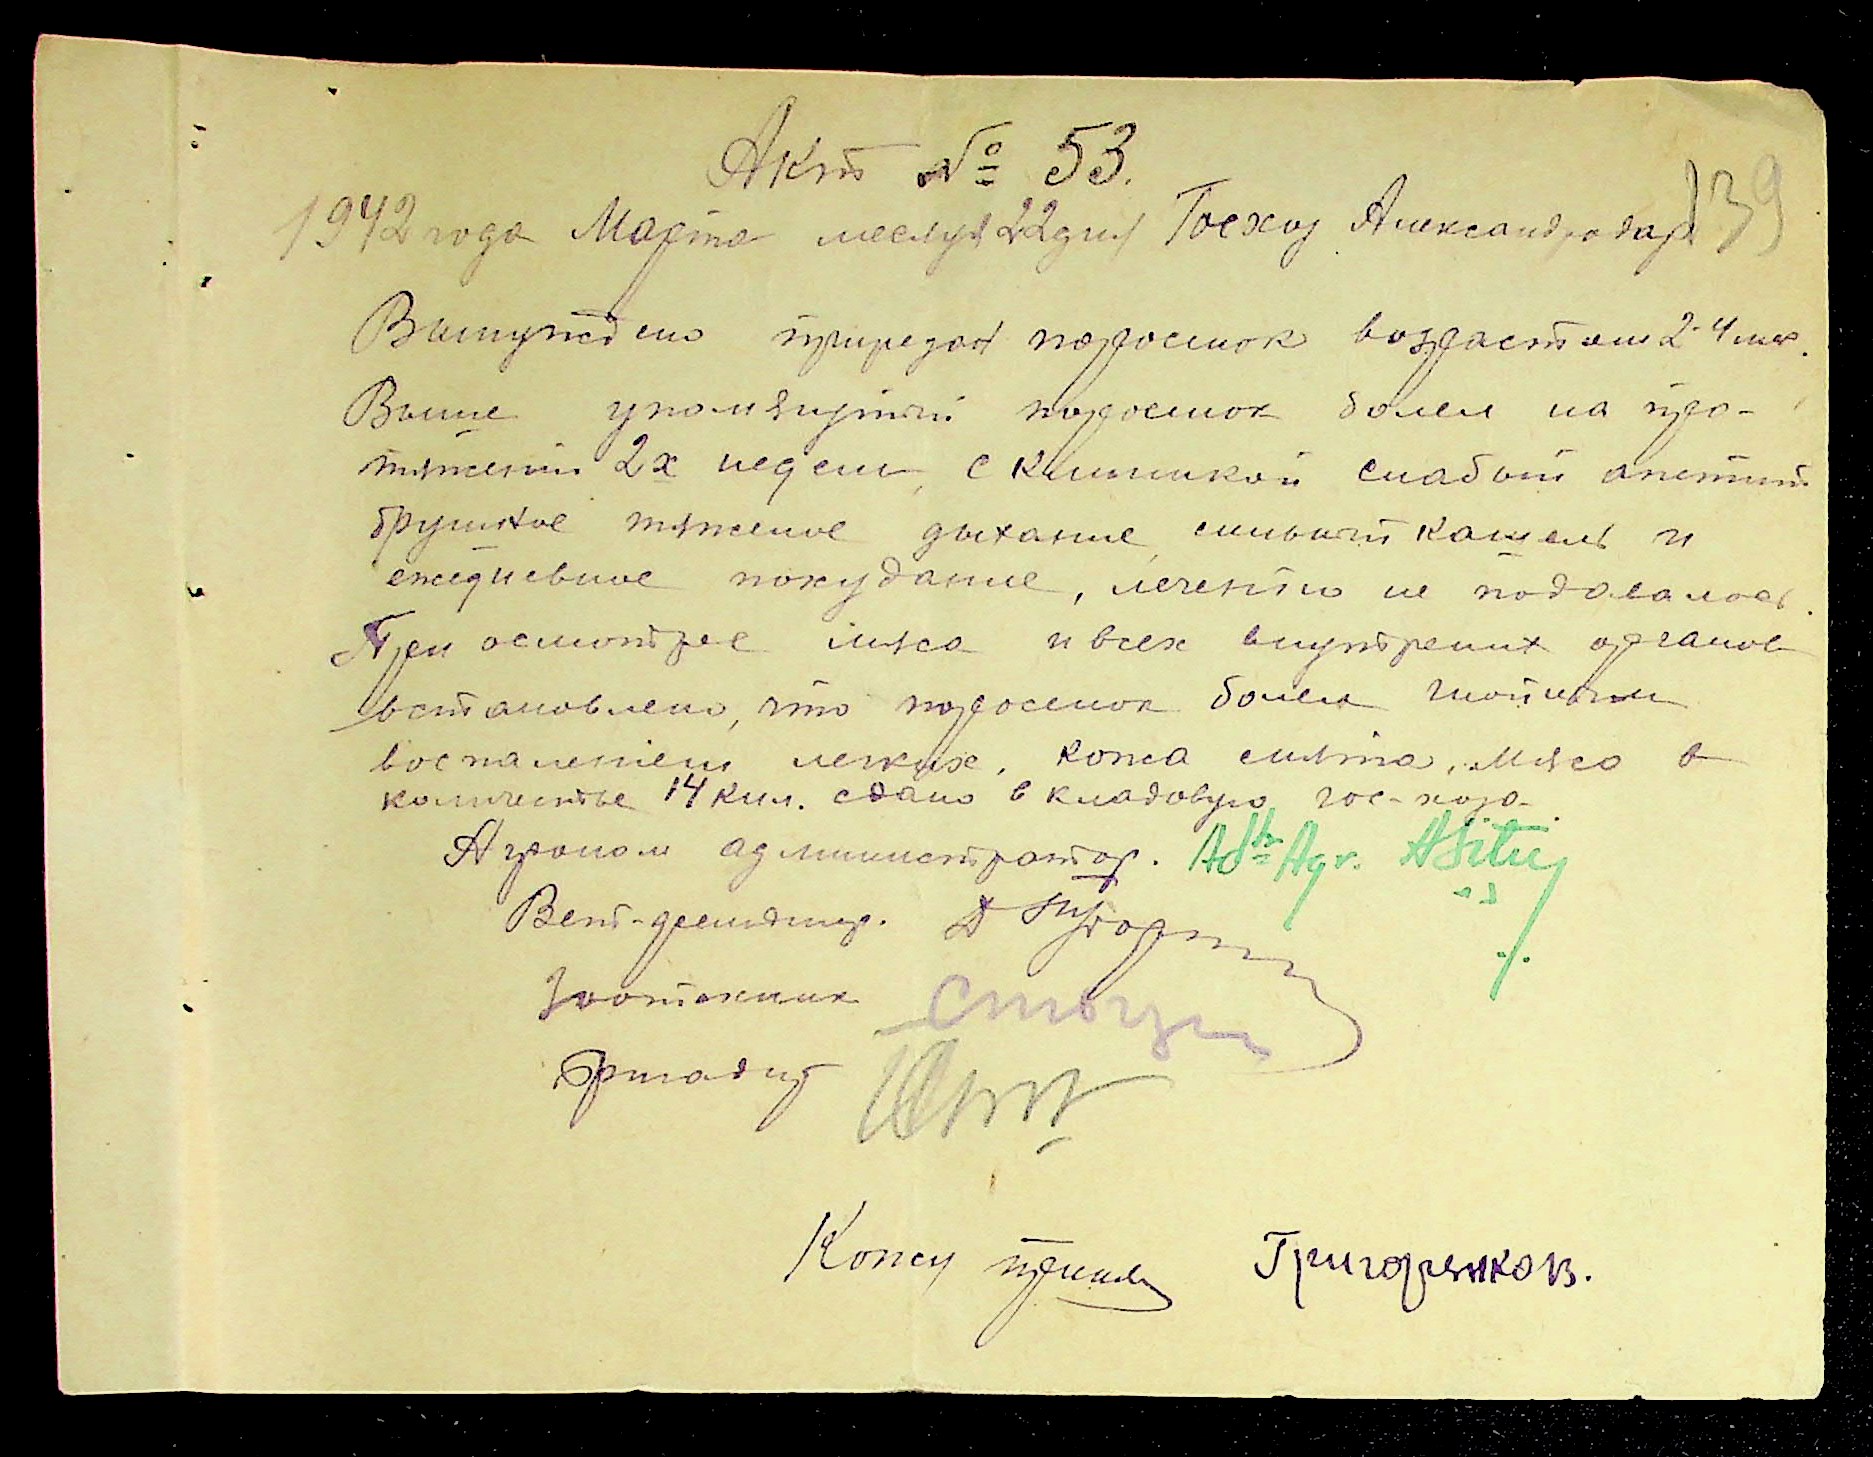 Акт № 53.
139
1942 года Марта месяця 22 дня Госхоз Александродар
Винуждено прирезан поросенок возрастом 2-4 мес.
Выше упомянутый поросенок болел на про-
тяжении 2х недели, с клиникой слабый апетит
брушное тяжелое дыхание, сильный кашель и
ежедневное похудание, лечению не подавалось.
При осмотре мяса и всех внутрених органов
встановлено, что поросенок болел гнойным
воспалением легких, кожа снята, мясо в
количестве 14 кил. сдано в кладовую гос-хоза.
Агроном администратор. Ad-tr Agr.
Вет-фельдшер.
Зоотехник
Бригадир
Кожу принял Григоренков.